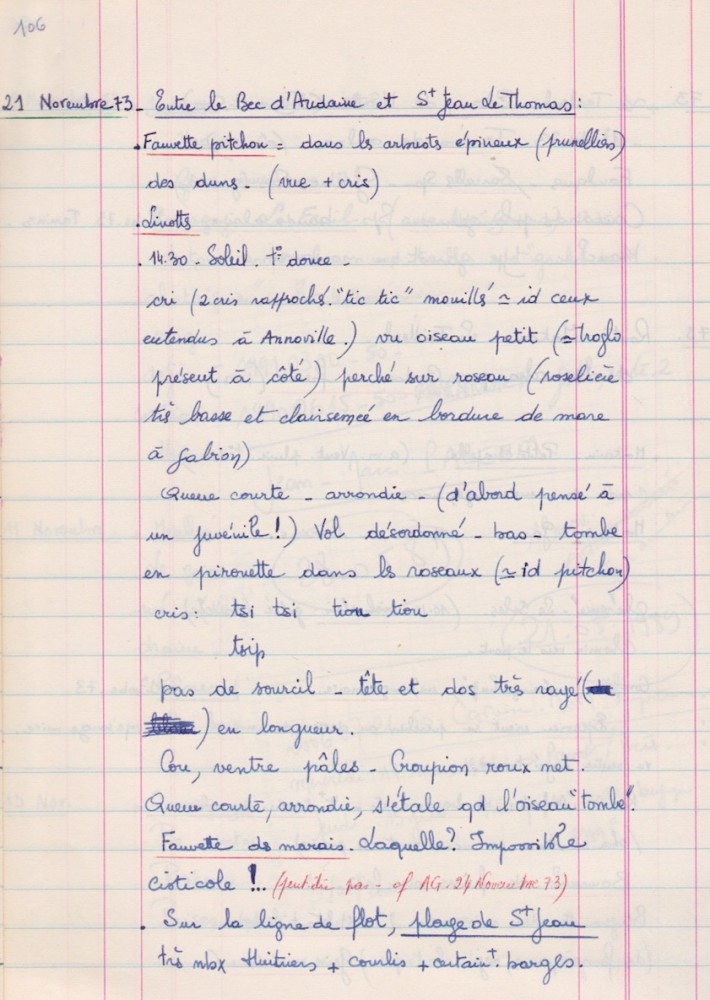 106
21 Novembre 73 - Entre le Bec d'Andaine et St Jean Le Thomas :
. Fauvette pitchou = dans ls arbusts épineux (prunelliers)
des duns - (vue + cris)
. Linotts
. 14.30 - Soleil. t° douce -
cri (2 cris rapprochés. "tic tic" mouillés ≃ id ceux
entendus à Annoville.) vu oiseau petit (≃ troglo
présent à côté) perché sur roseau (roselière
très basse et clairsemée en bordure de mare
à gabion)
Queue courte - arrondie - (d'abord pensé à
un juvénile !) Vol désordonné - bas - tombe
en pirouette dans ls roseaux (≃ id pitchou)
cris : tsi tsi tiou tiou
tsip
pas de sourcil - tête et dos très rayé (
) en longueur.
Cou, ventre pâles - Croupion roux net.
Queue courte, arrondie, s'étale qd l'oiseau "tombe".
Fauvette ds marais. Laquelle ? Impossible
cisticole !.. (peut être pas - cf AG. 24 Novembre 73)
. Sur la ligne de flot, plage de St Jean
très nbx Huitriers + courlis + certaint. barges.